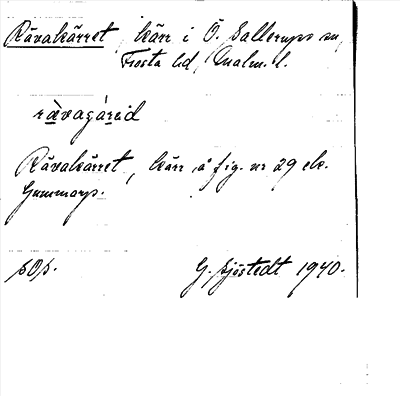 Rävakärret, kärr i Ö. Sallerups sn,
Frosta hd, Malm. l.
rävagárəd
Rävakärret, kärr å fig. nr 29 ek.
Gummarp.
sOs.
G. Sjöstedt 1940.